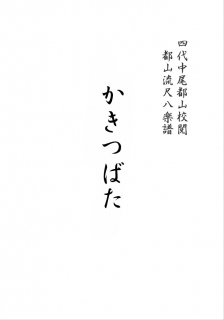 四代中尾都山校閲
都山流尺八楽譜
かきつばた